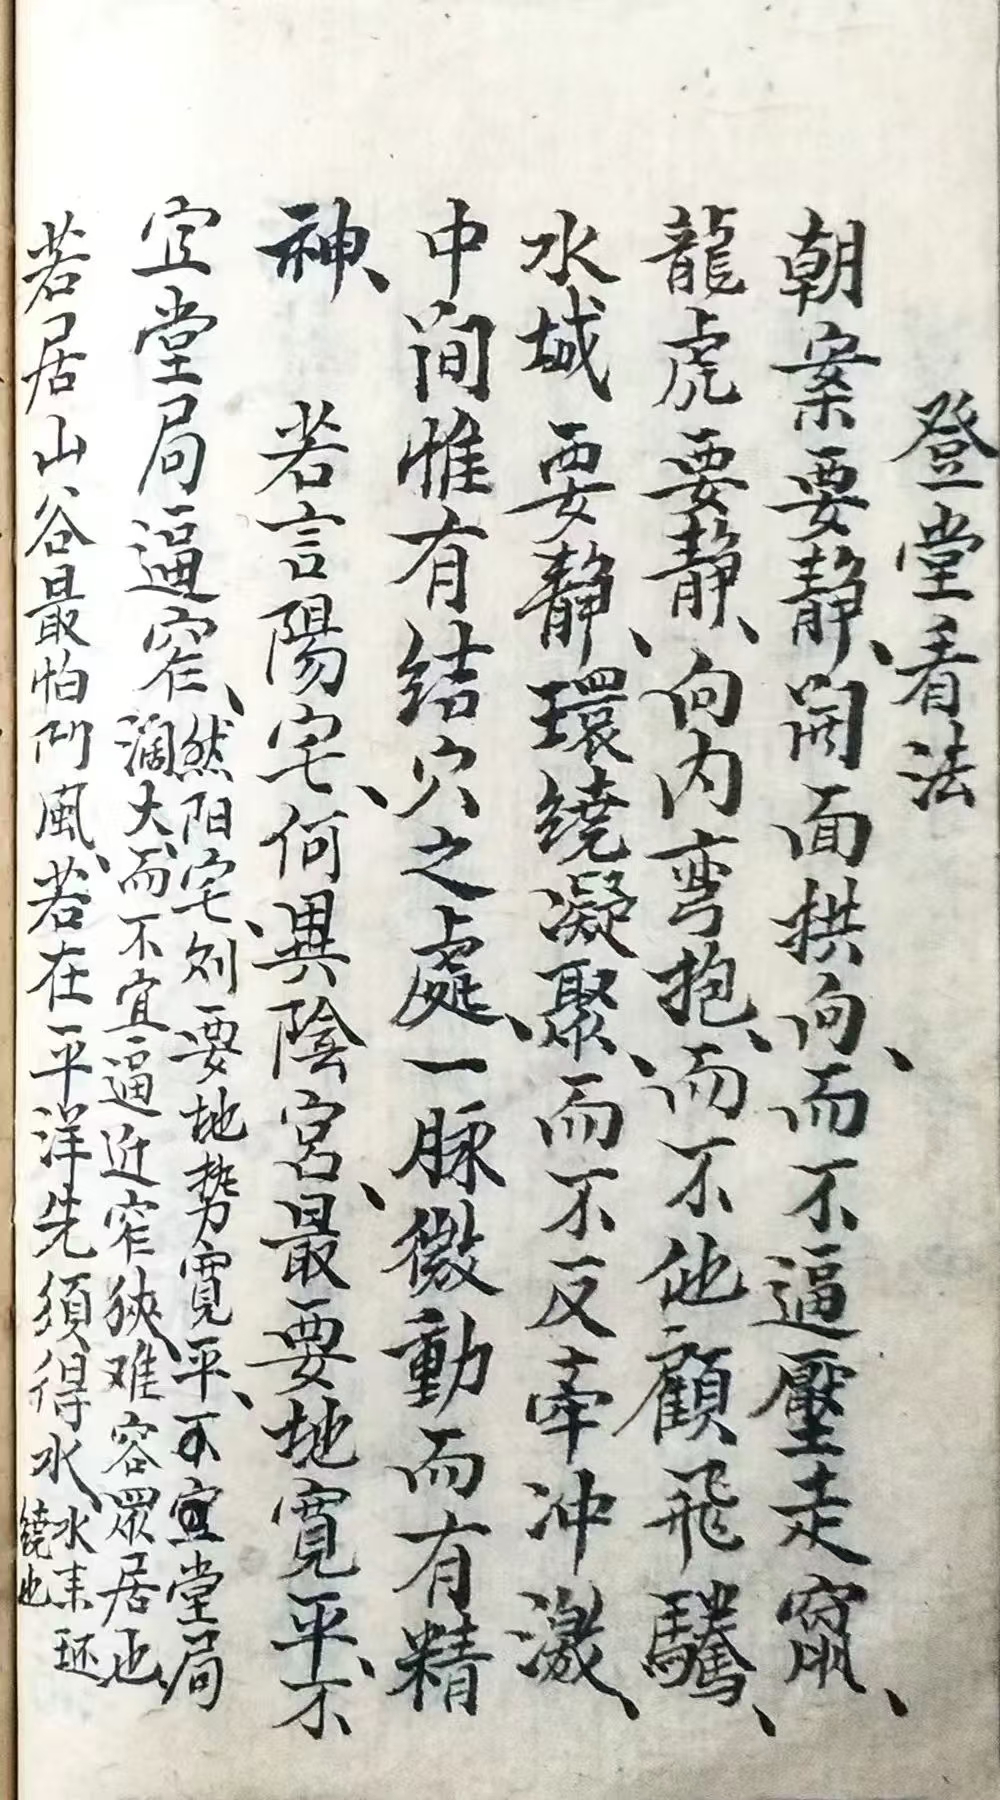 登堂看法
朝案要静、開面拱向、而不逼壓走窜、
龍虎要静、向内弯抱、而不他顧飛騰、
水城要静、環繞凝聚、而不反牵冲激、
中间惟有结穴之處、一脉微動而有精
神、若言陽宅、何異陰宮、最要地寬平、不
宜堂局逼窄、
然阳宅、则要地势寬平、不宜堂局
濶大、而不宜逼近窄狹、难容眾居也、
若居山谷最怕凹風、若在平洋先須得水、
水来环
繞也